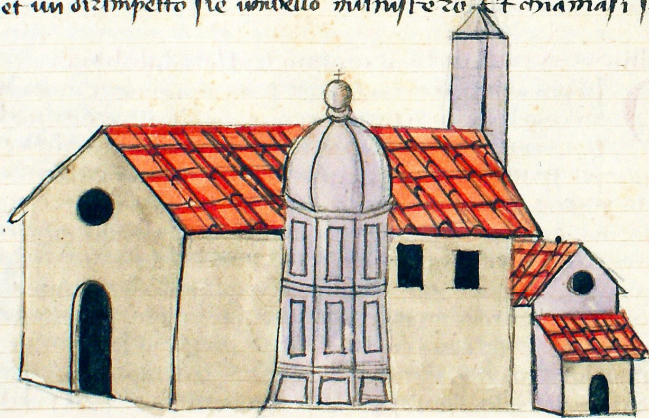 et un dirimpetto sie unbello munistero Et chiamasi